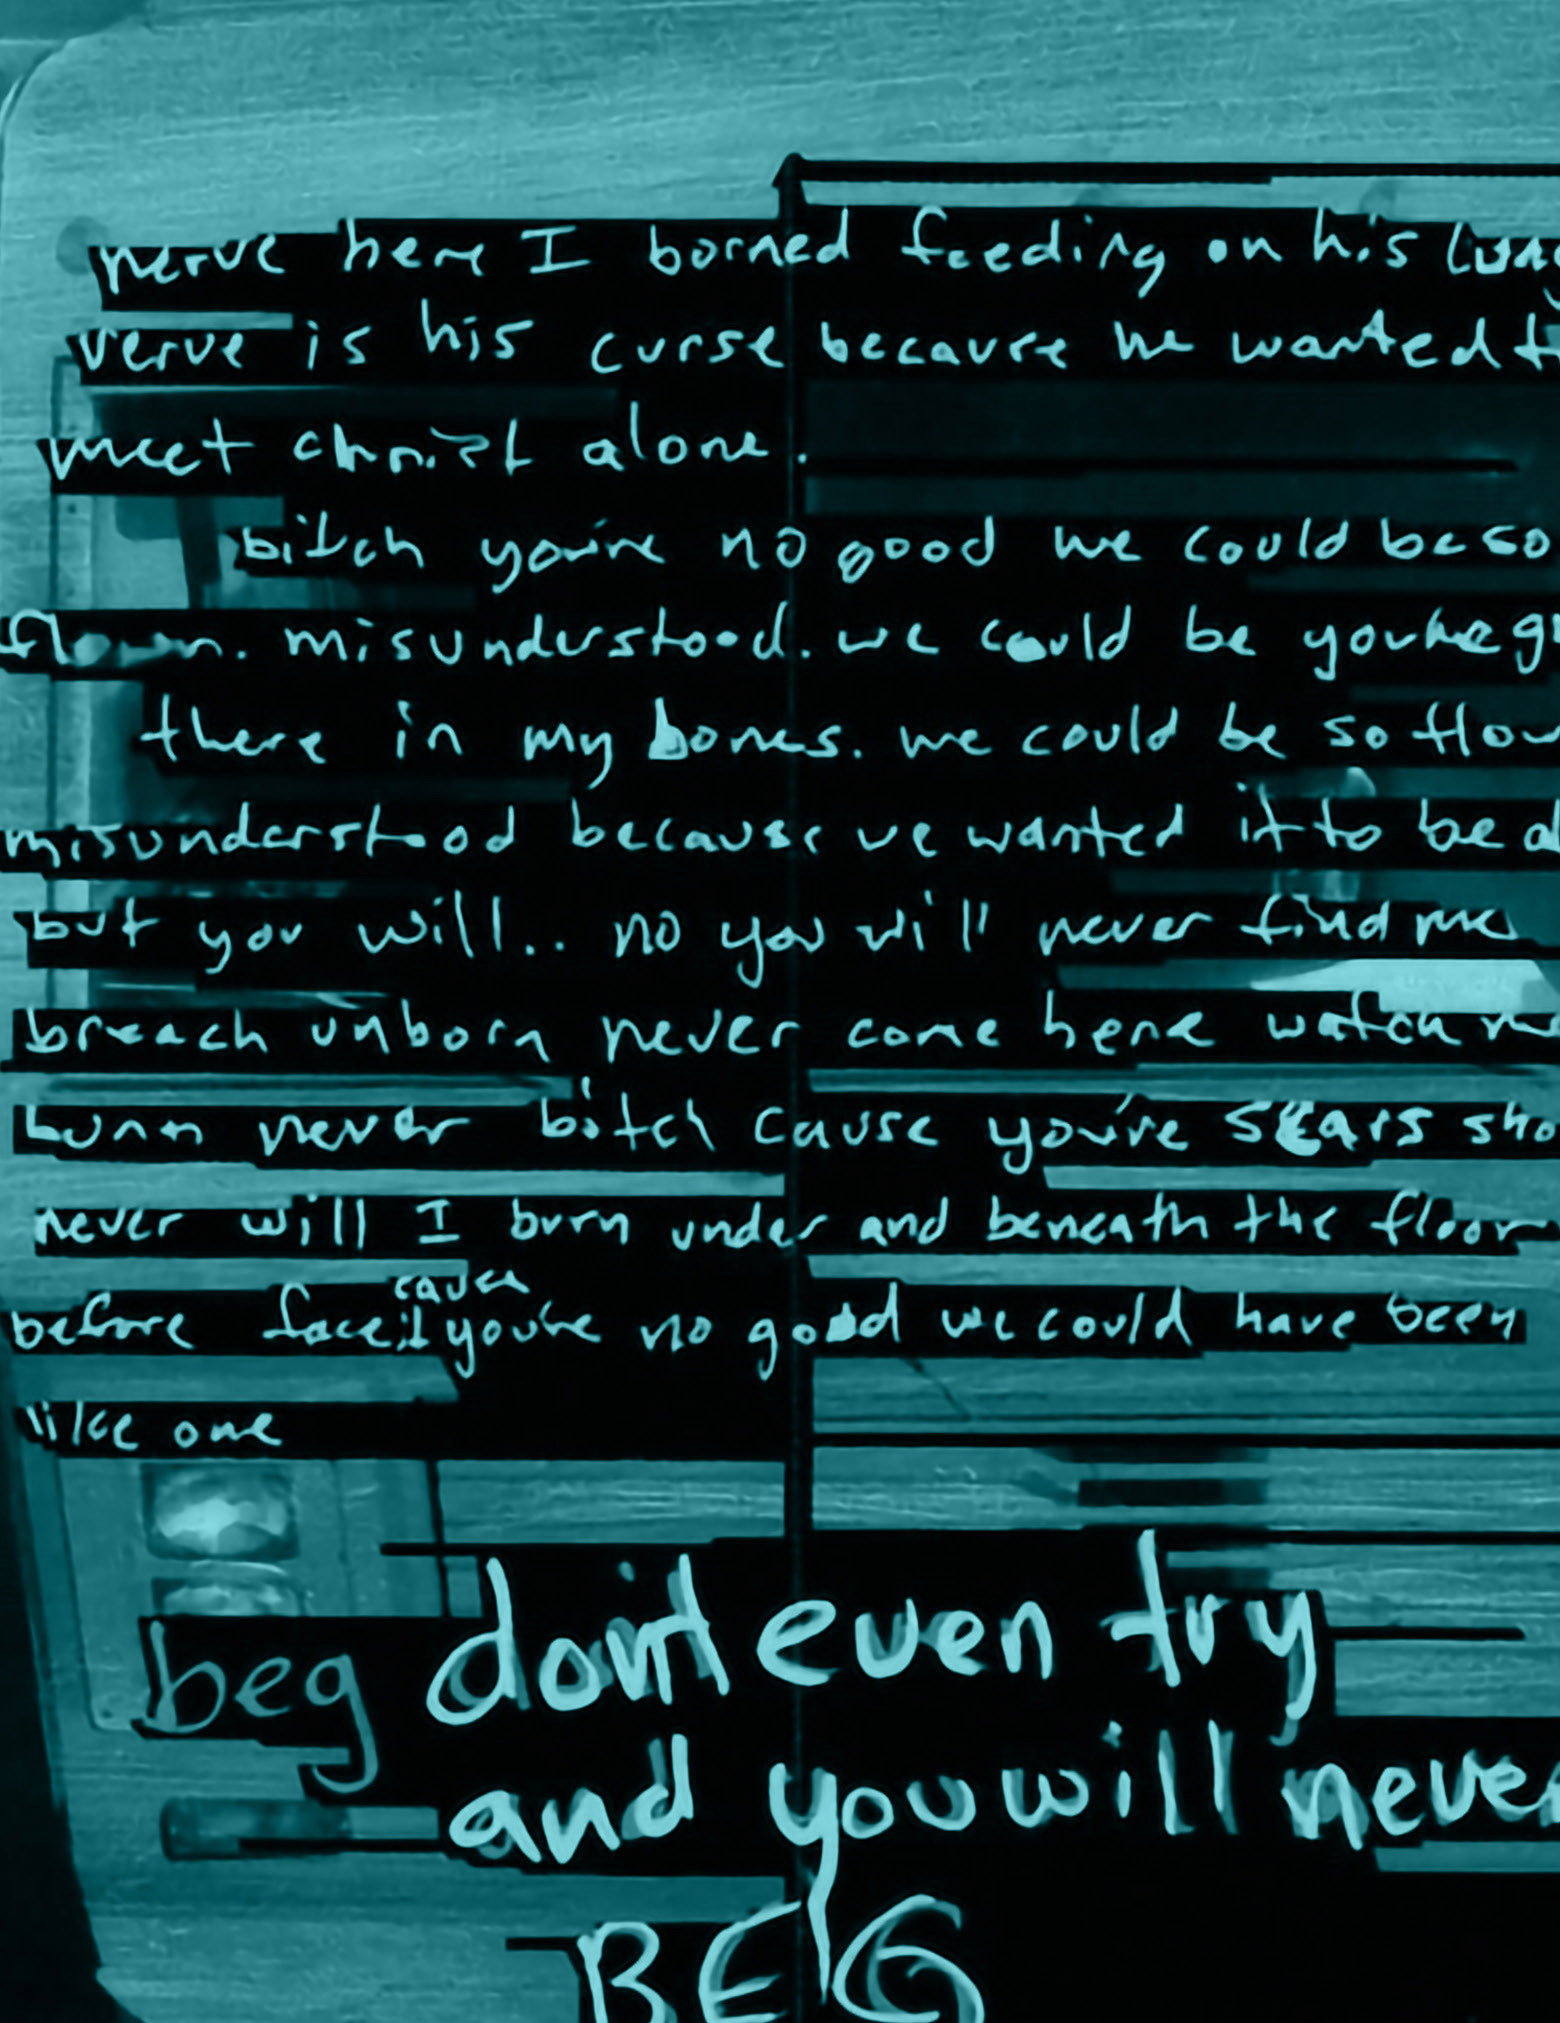 nerve here I borned feeding on his
verve is his curse because he wanted
meet christ alone.
bitch you're no good we could be so
misunderstood. we could be
there in my bones. we could be so
misunderstood because we wanted it to be
but you will.. no you will never find me
breach unborn never come here watch
never bitch cause you're scars
never will I burn under and beneath the floor
before face it cause you're no good we could have been
like one
beg don't even try
and you will never
BEG